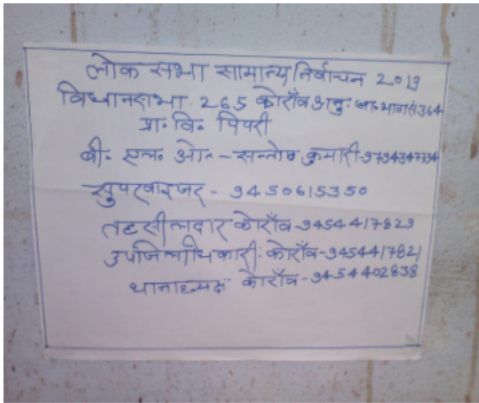 लोक सभा सामान्य निर्वाचन 2019
विधानसभा 265 कोराँव अनु॰ जा॰ भाग सं 364
प्रा॰ वि॰ पिपरी
बी॰ एल॰ ओ॰ - सन्तोष कुमारी
सुपरवाइजर - 9450615350
तहसीलदार कोराँव 9454417829
उपजिलाधिकारी: कोराँव - 9454417821
थानाध्यक्ष कोराँव - 9454402838